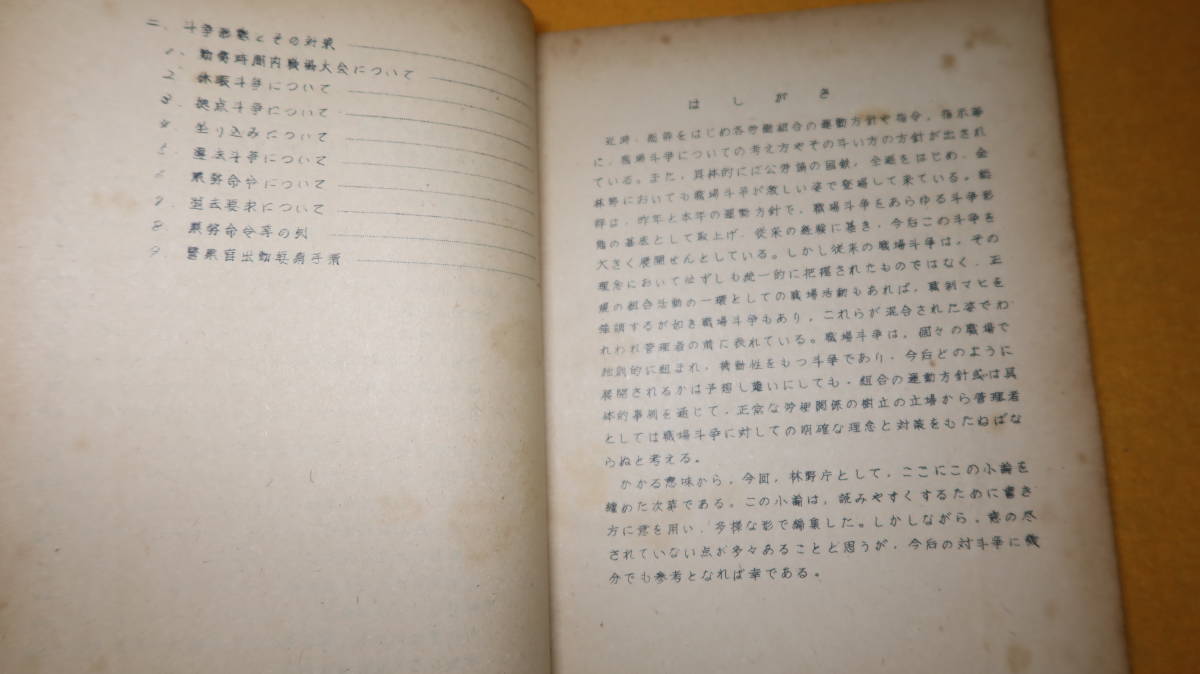 二、斗争形態とその対策
1、勤務時間内職場大会について
2、休暇斗争について
3、拠点斗争について
4、坐り込みについて
5、遵法斗争について
6、業務命令について
7、退去要求について
8、業務命令等の例
9、警察官出動要請手続
はしがき
近時、総評をはじめ各労働組合の運動方針や指令、指示等
に、職場斗争についての考え方やその斗い方の方針が出され
ている。また、具体的には公労協の国鉄、全逓をはじめ、全
林野においても職場斗争が激しい姿で登場して来ている。総
評は、昨年と本年の運動方針で、職場斗争をあらゆる斗争形
態の基底として取上げ、従来の経験に基き、今后この斗争を
大きく展開せんとしている。しかし従来の職場斗争は、その
理念において必ずしも統一的に把握されたものではなく、正
規の組合活動の一環としての職場活動もあれば、職制マヒを
強調するが如き職場斗争もあり、これらが混合された姿でわ
れわれ管理者の前に表れている。職場斗争は、個々の職場で
独創的に組まれ、機動性をもつ斗争であり、今后どのように
展開されるかは予想し難いにしても、組合の運動方針或は具
体的事例を通じて、正常な労使関係の樹立の立場から管理者
としては職場斗争に対しての明確な理念と対策をもたねばな
らぬと考える。
かかる意味から、今回、林野庁として、ここにこの小論を
纏めた次第である。この小論は、読みやすくするために書き
方に意を用い、多様な形で編集した。しかしながら、意の尽
されていない点が多々あることと思うが、今后の対斗争に幾
分でも参考となれば幸である。